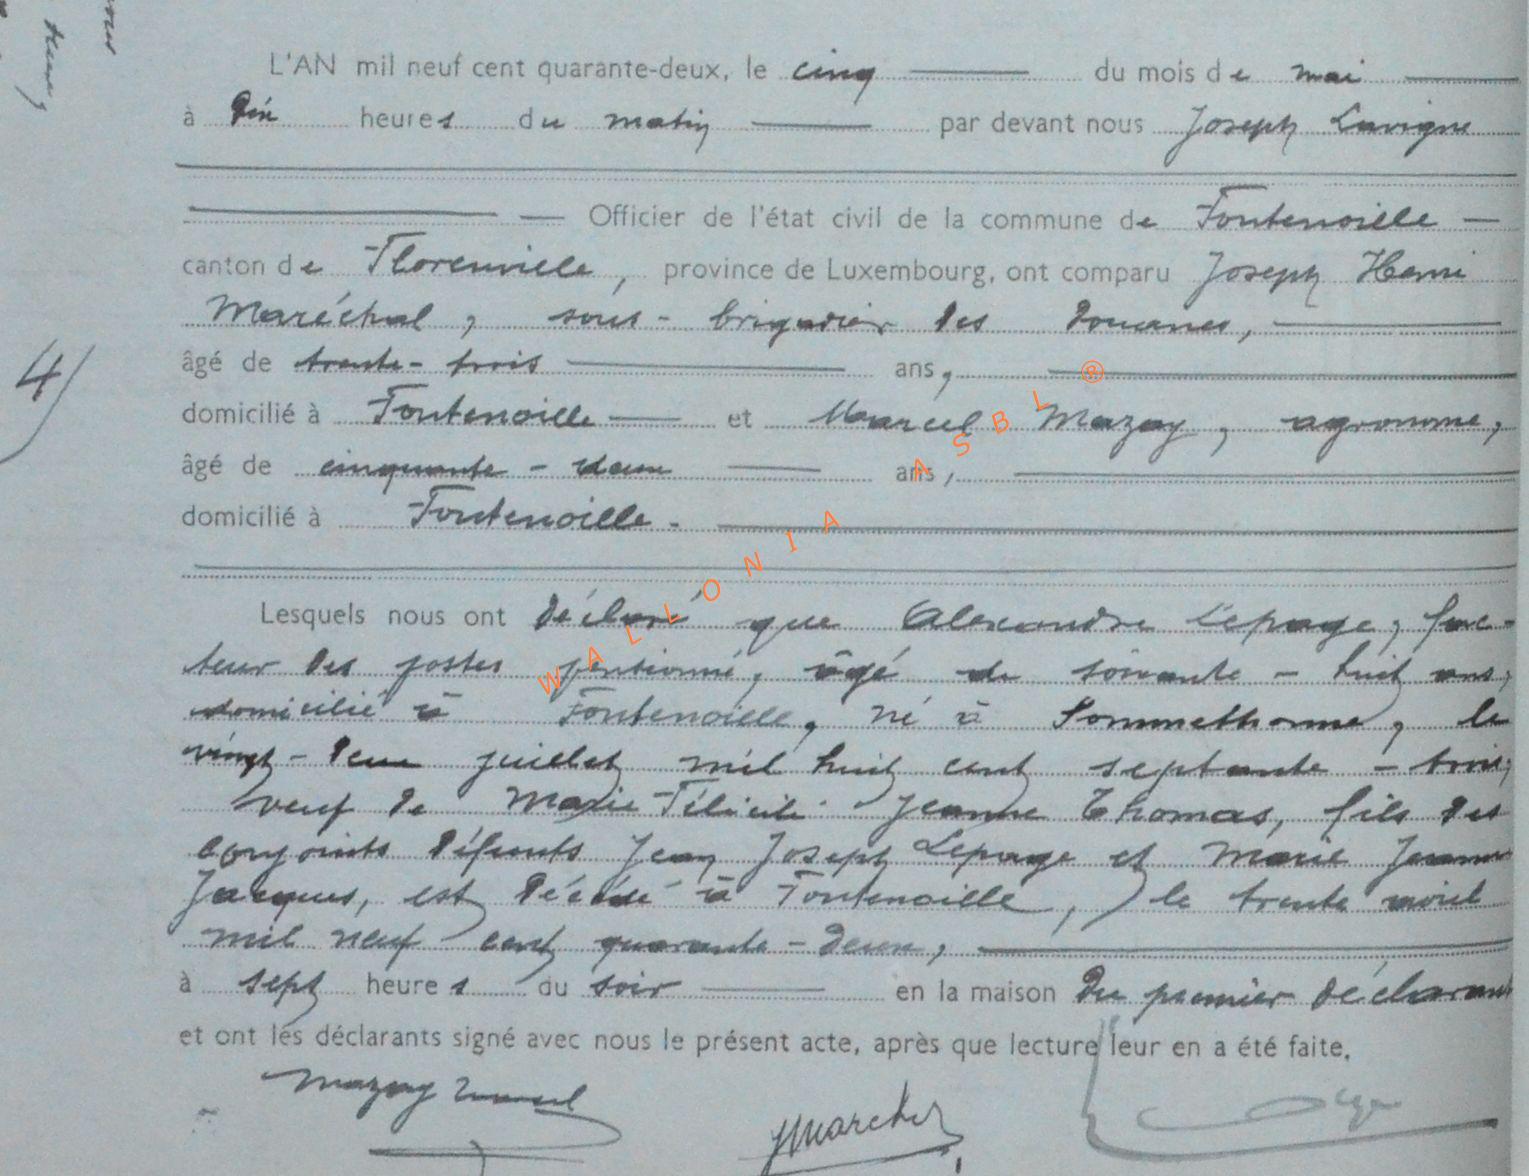 L'AN mil neuf cent quarante-deux, le cinq du mois de mai
à dix heures du matin par devant nous Joseph Lavigne
Officier de l'état civil de la commune de Fontenoille
canton de Florenville, province de Luxembourg, ont comparu Joseph Henri
Maréchal, sous-brigadier des Douanes,
âgé de trente-trois ans,
4/
domicilié à Fontenoille et Marcel Mazay, agronome,
âgé de cinquante-deux ans,
domicilié à Fontenoille.
Lesquels nous ont déclaré que Alexandre Lepage, fac-
teur des postes pensionné, âgé de soixante-huit ans,
domicilié à Fontenoille, né à Sommethonne, le
vingt-deux juillet mil huit cent septante-trois,
veuf de Marie Félicité Jeanne Thomas, fils des
conjoints défunts Jean Joseph Lepage et Marie Jeanne
Jacques, est décédé à Fontenoille, le trente avril
mil neuf cent quarante-deux,
à sept heures du soir en la maison du premier déclarant
et ont les déclarants signé avec nous le présent acte, après que lecture leur en a été faite.
Mazay Marcel
WALLONIA ASBL ®